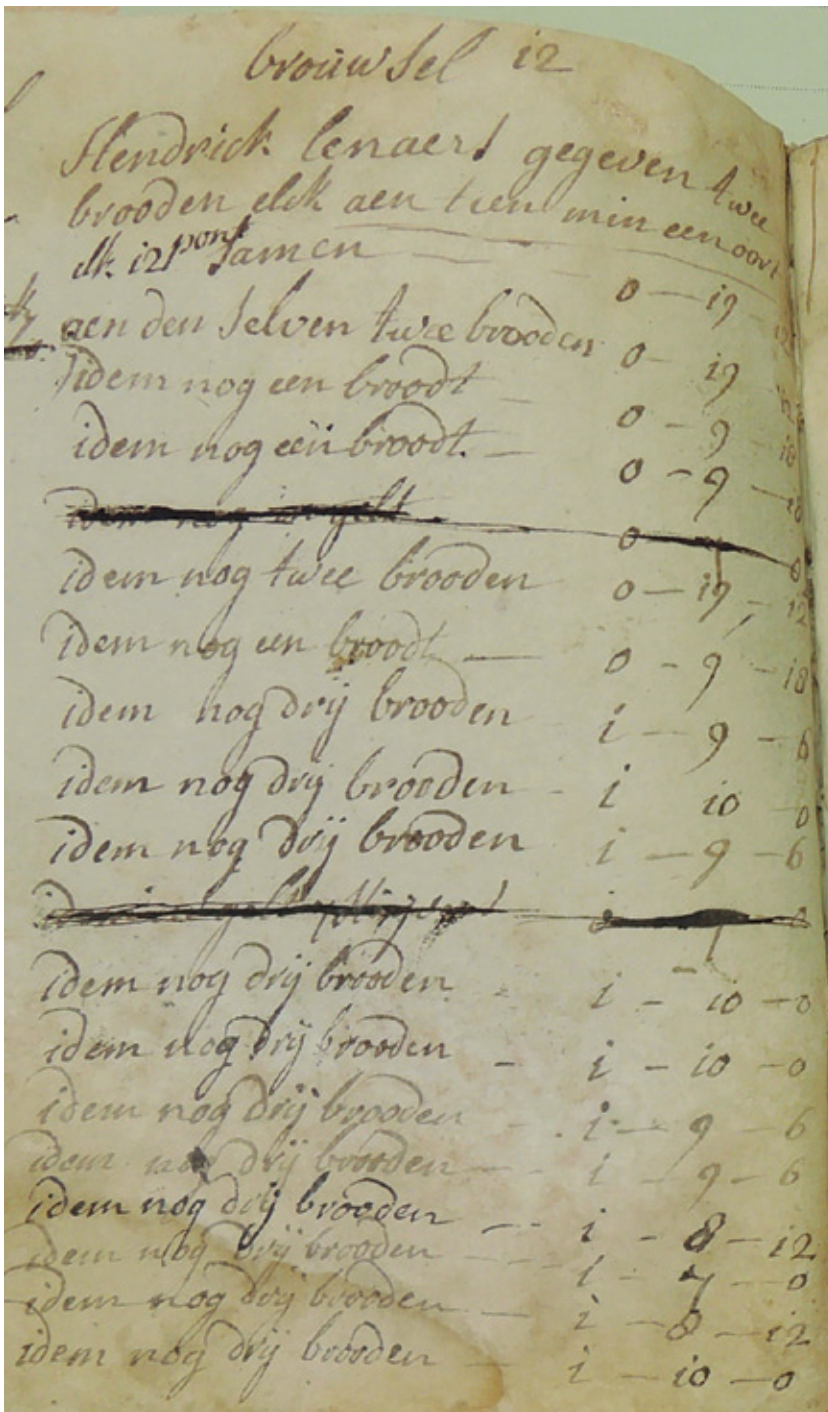 brouwsel i2
Hendrick lenaers gegeven twee
brooden elck aen tien min een oort
elk i2 pont samen 0 — i9 — i2
aen den selven twee brooden 0 — i9
idem nog een broodt — 0 — 9 — i8
idem nog een broodt. — 0 — 9 — i8
idem nog gelt 0
idem nog twee brooden 0 — i9 — i2
idem nog een broodt — 0 — 9 — i8
idem nog drij brooden — i — 9 — 6
idem nog drij brooden — i io — 0
idem nog drij brooden i — 9 — 6
idem nog drij brooden - i — io — 0
idem nog drij brooden - i — io — 0
idem nog drij brooden - i — 9 — 6
idem nog drij brooden — i — 9 — 6
idem nog drij brooden — i — 8 — i2
idem nog drij brooden — i — 7 — 0
idem nog drij brooden — i — 8 — i2
idem nog drij brooden — i — io — 0